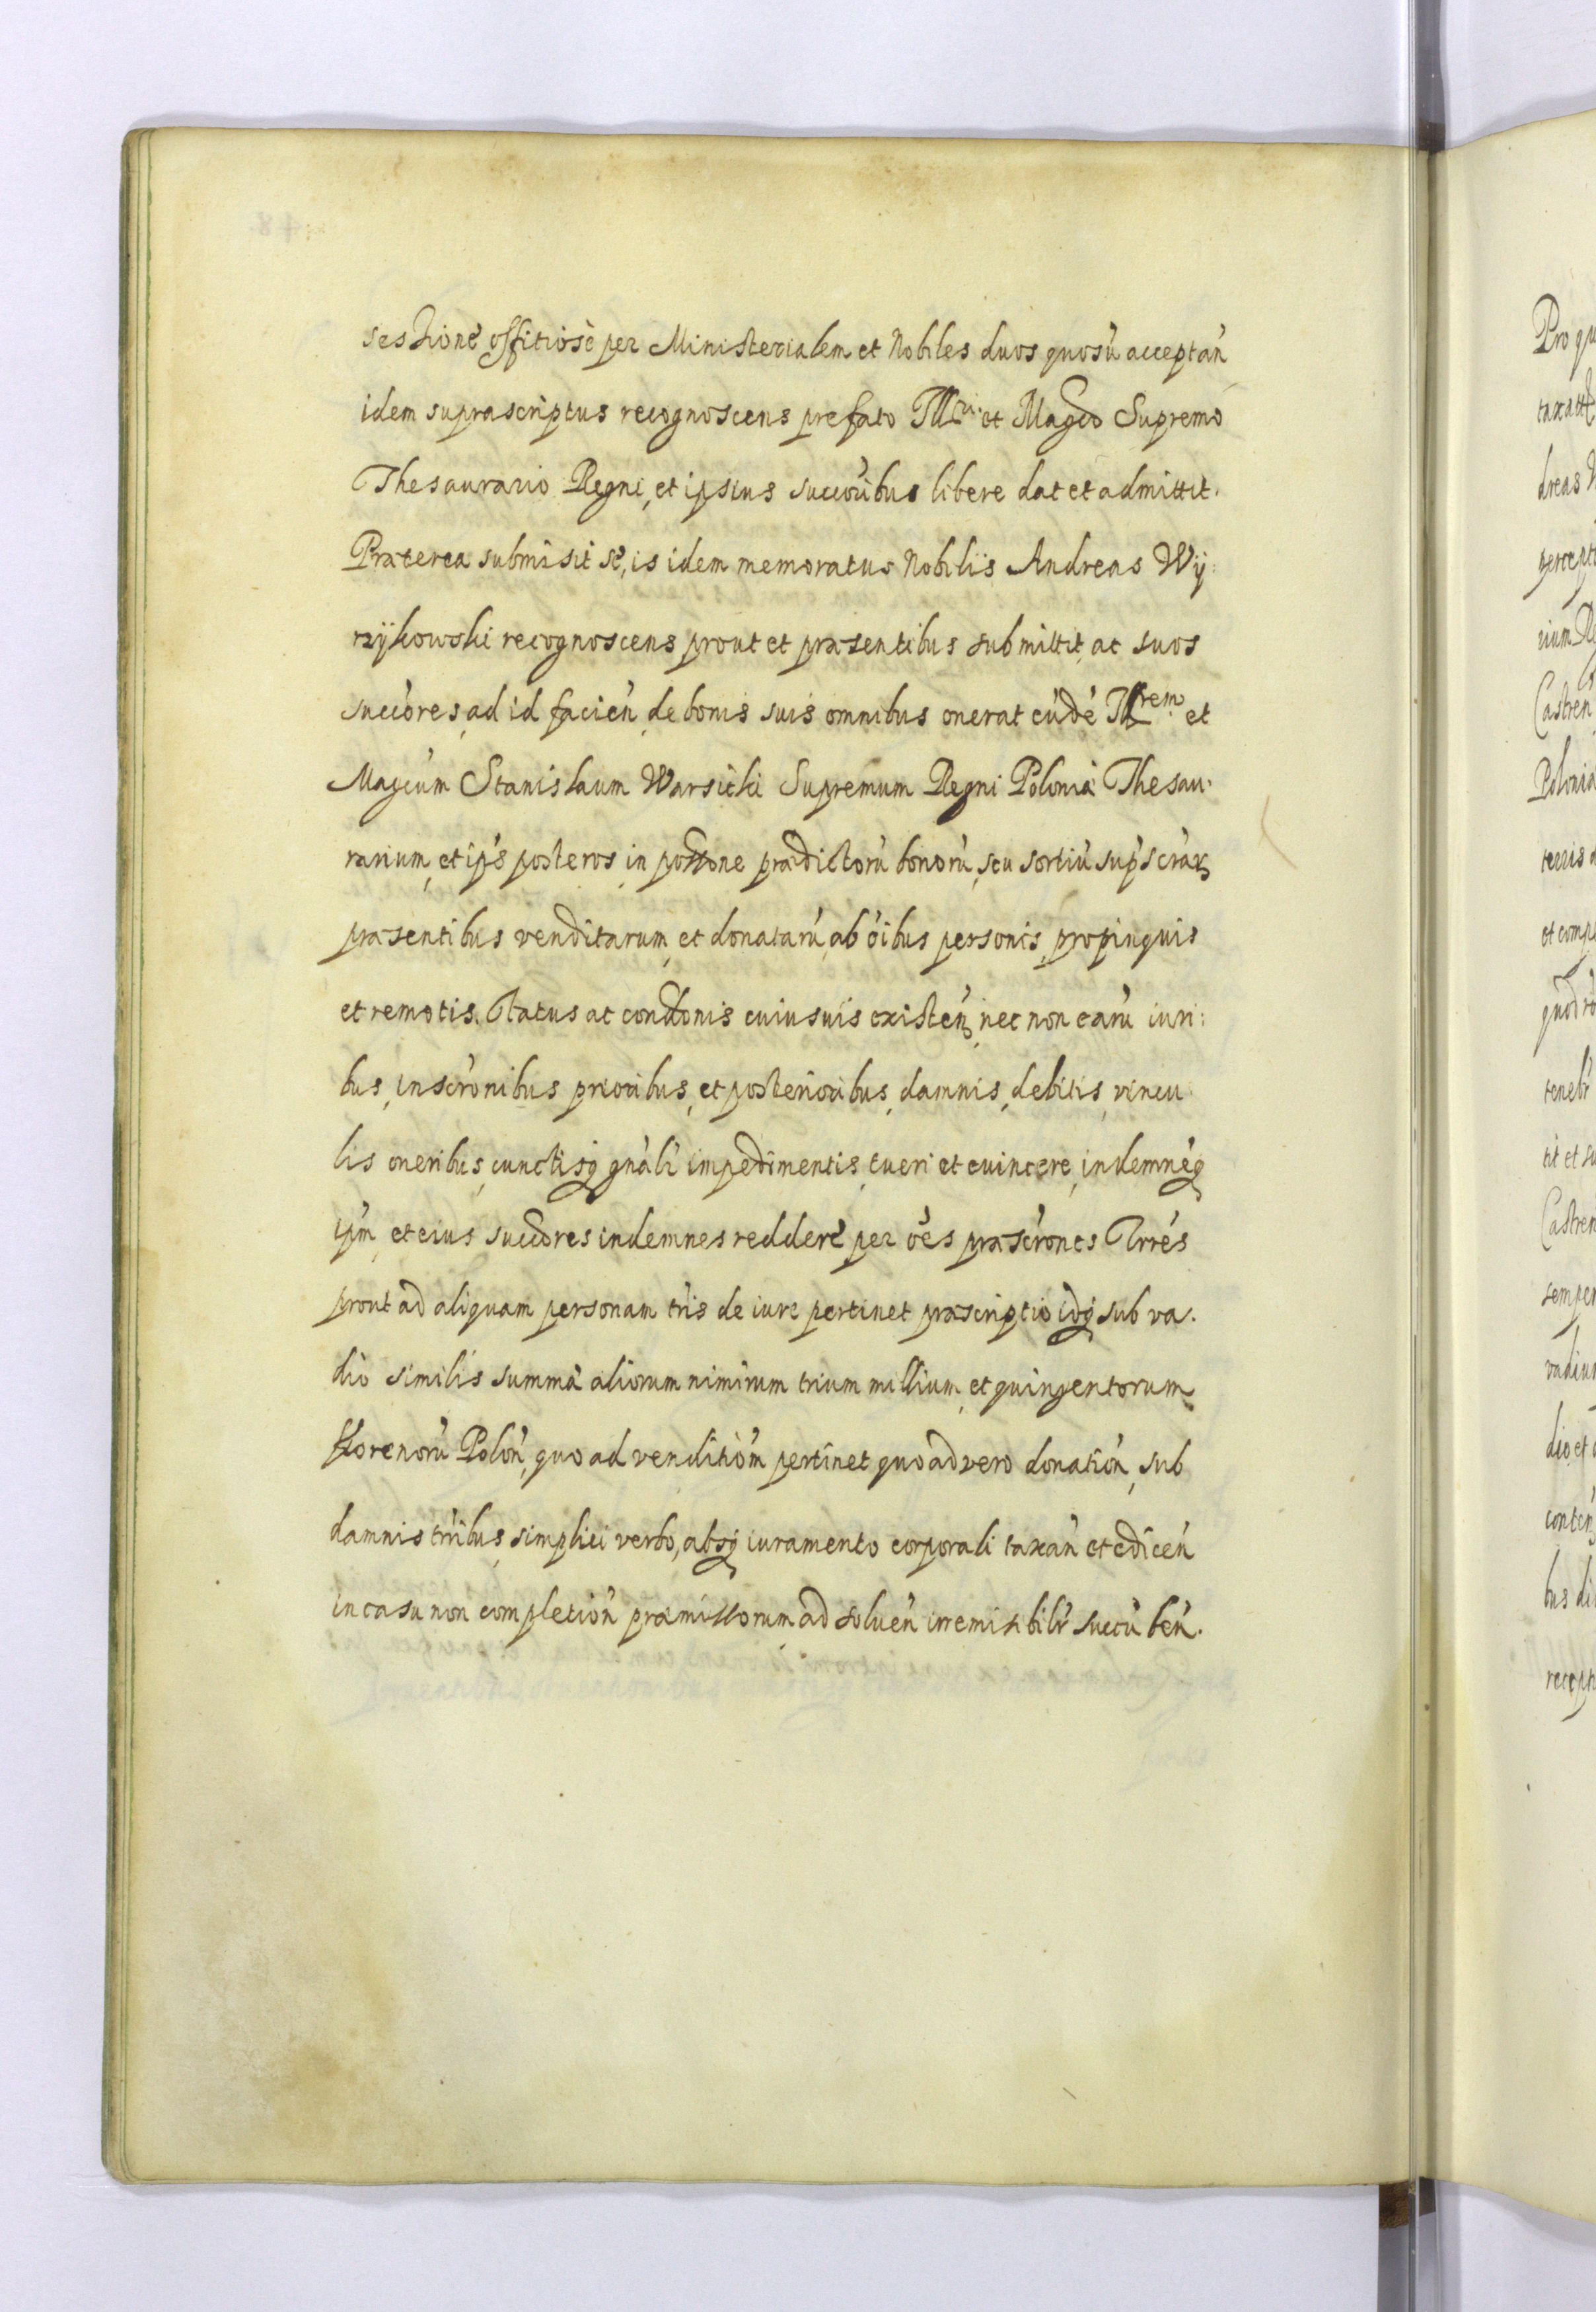 sessionè offitiosè per Ministerialem et Nobiles duos quosù acceptań
idem suprascriptus recognoscens prefato Illri et Magco Supremo
Thesaurario Regni, et ipsius succoribus libere dat et admittit.
Præterea submisit se, is idem memoratus Nobilis Andreas Wÿ:
rzÿkowski recognoscens prout et præsentibus submittit, ac suos
succores, ad id facień, de bonis suis omnibus onerat eùdè Illrem et
Magcum Stanislaum Warsicki Supremum Regni Poloniæ Thesau:
rarium, et ips posteros, in possone prædictorù bonorù, seu sortiù
præsentibus venditarum, et donatarù, ab oibus personis, propinquis
et remotis. Status ac condonis cuiusuis existeń, nec non earù iuri:
bus, inscronibus prioribus, et posterioribus, damnis, debitis, vincu:
lis oneribus, cunctisq gnali impedimentis, tueri et euincere, indemneq
ipm et eius succores indemnes reddere, per oes præscrones Trres
prout ad aliquam personam tris de iure pertinet præscriptio idq sub va:
dio similis summæ aliorum nimirum trium millium, et quingentorum
florenorù Poloń, quo ad venditiom pertinet quo ad vero donatioń, sub
damnis trribus, simplici verbo, absq iuramento corporali taxań et ediceń
in casu non completioń præmissorum ad solueń irremissibilr succùbeń.
Pro qu
dreas
Castren
Polonia
et comp
tenebr
tit et su
Castren
semper
vadium
dio, et
bus di